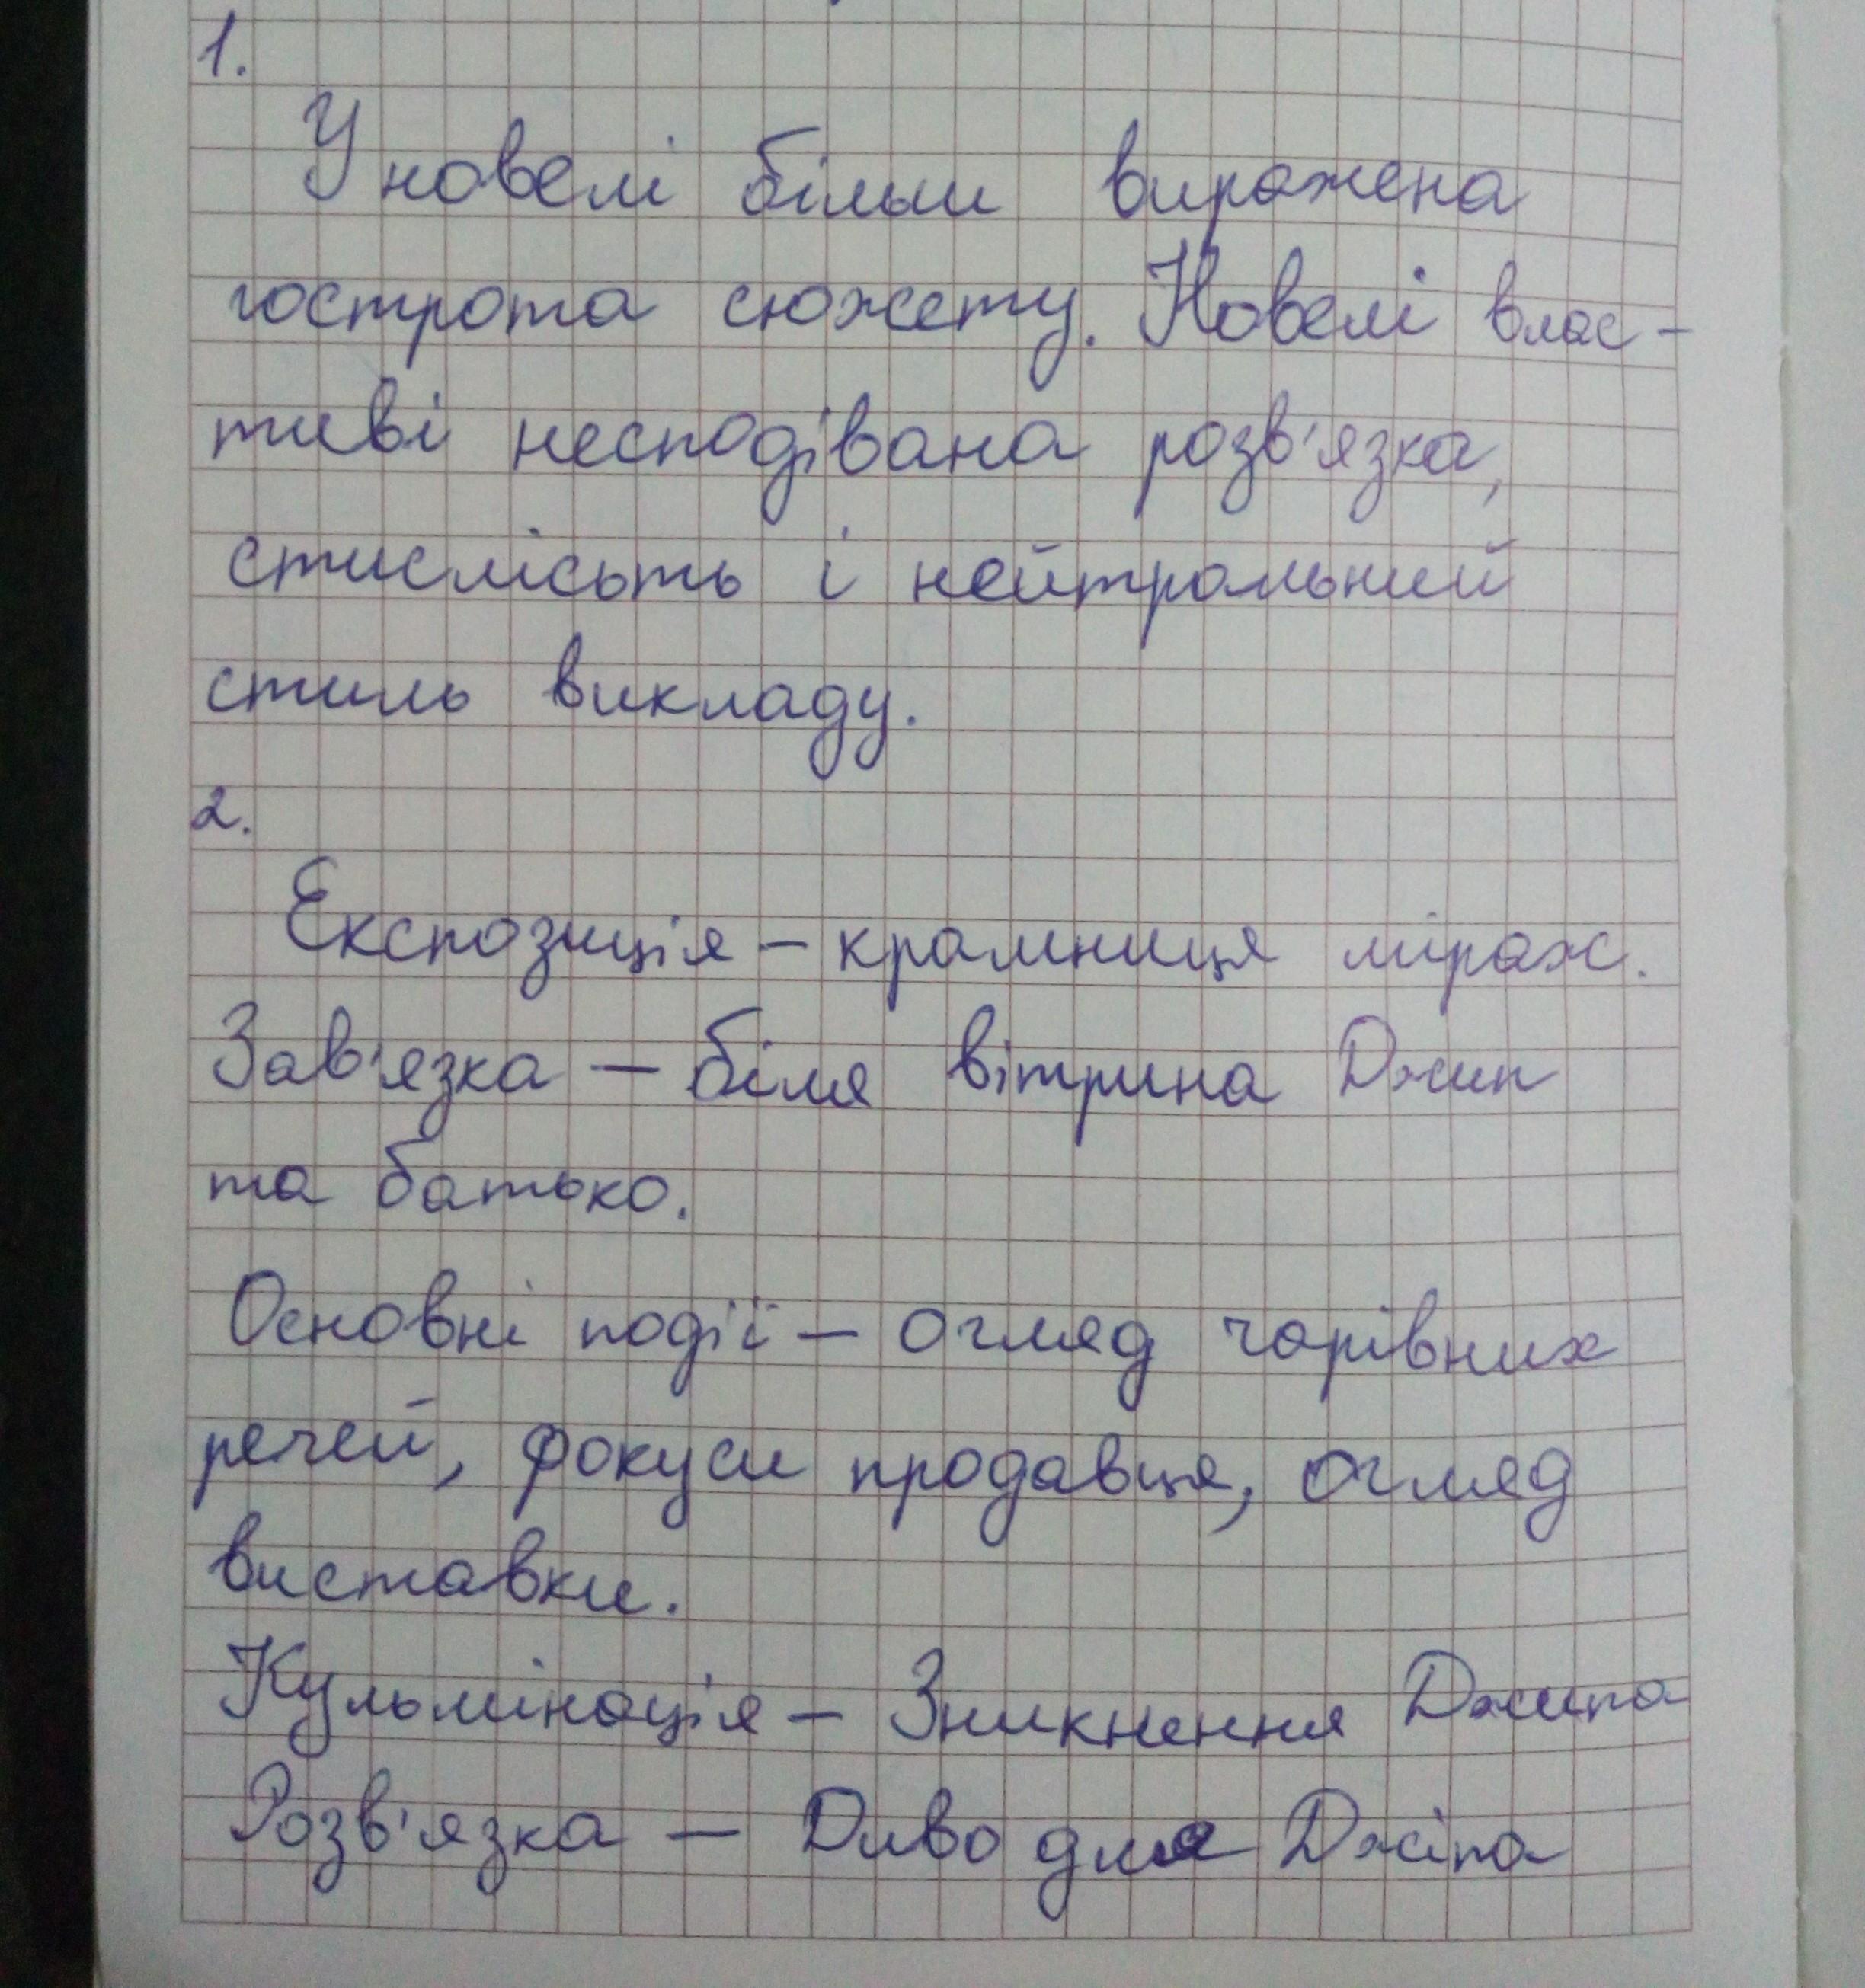 1.
У новелі більш виражена
гострота сюжету. Новелі влас-
тиві несподівана розв'язка,
стислісьть і нейтральний
стиль викладу.
2.
Експозиція – крамниця міраж.
Зав'язка – біля вітрина Джип
та батько.
Основні події – огляд чарівних
речей, фокуси продавця, огляд
виставки.
Кульмінація – Зникнення Джипа
Розв'язка – Диво для Джіпа